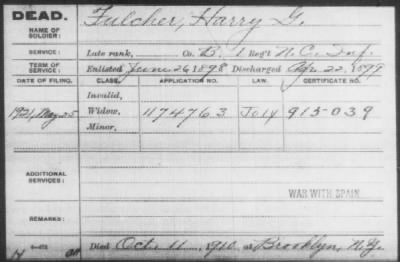 DEAD.
NAME OF SOLDIER: Fulcher, Harry G.
SERVICE: Late rank, Co. B, 1 Reg't N.C. Inf.
TERM OF SERVICE: Enlisted June 26 1898 Discharged Apr. 22, 1899
DATE OF FILING. CLASS. APPLICATION NO. LAW. CERTIFICATE NO.
Invalid,
1921, May 25 Widow, 1174763 July 915-039
Minor,
ADDITIONAL SERVICES:
WAR WITH SPAIN
REMARKS:
Died Oct. 11, 1910, at Brooklyn, N.Y.